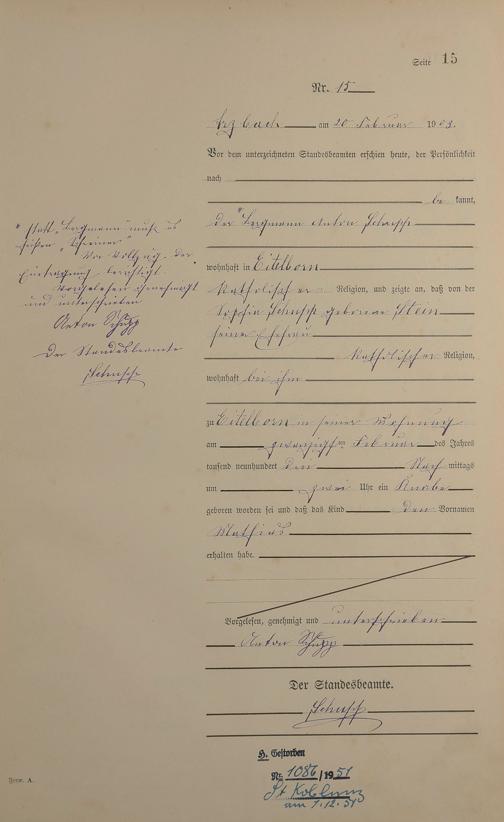 Seite 15
Nr. 15
Arzbach am 20 Februar 1903.
Vor dem unterzeichneten Standesbeamten erschien heute, der Persönlichkeit
nach
be kannt,
der * Bergmann Anton
wohnhaft in Eitelborn
katholischer Religion, und zeigte an, daß von der
Sophia geborene Stein
seiner Ehefrau
katholischer Religion,
wohnhaft bei ihm
zu Eitelborn in seiner Wohnung
am zwanzigsten Februar des Jahres
tausend neunhundert drei Nachmittags
um zwei Uhr ein Knabe
geboren worden sei und daß das Kind den Vornamen
Mathias
erhalten habe.
* statt "Bergmann" muß es
heißen
Vor Vollzug der
Eintragung berichtigt.
Vorgelesen genehmigt
und unterschrieben
Anton Schupp
Der Standesbeamte
Vorgelesen, genehmigt und unterschrieben
Anton Schupp
Der Standesbeamte.
H. Gestorben
Nr. 1086/1951
St Koblenz
am 1.12.51
Form. A.